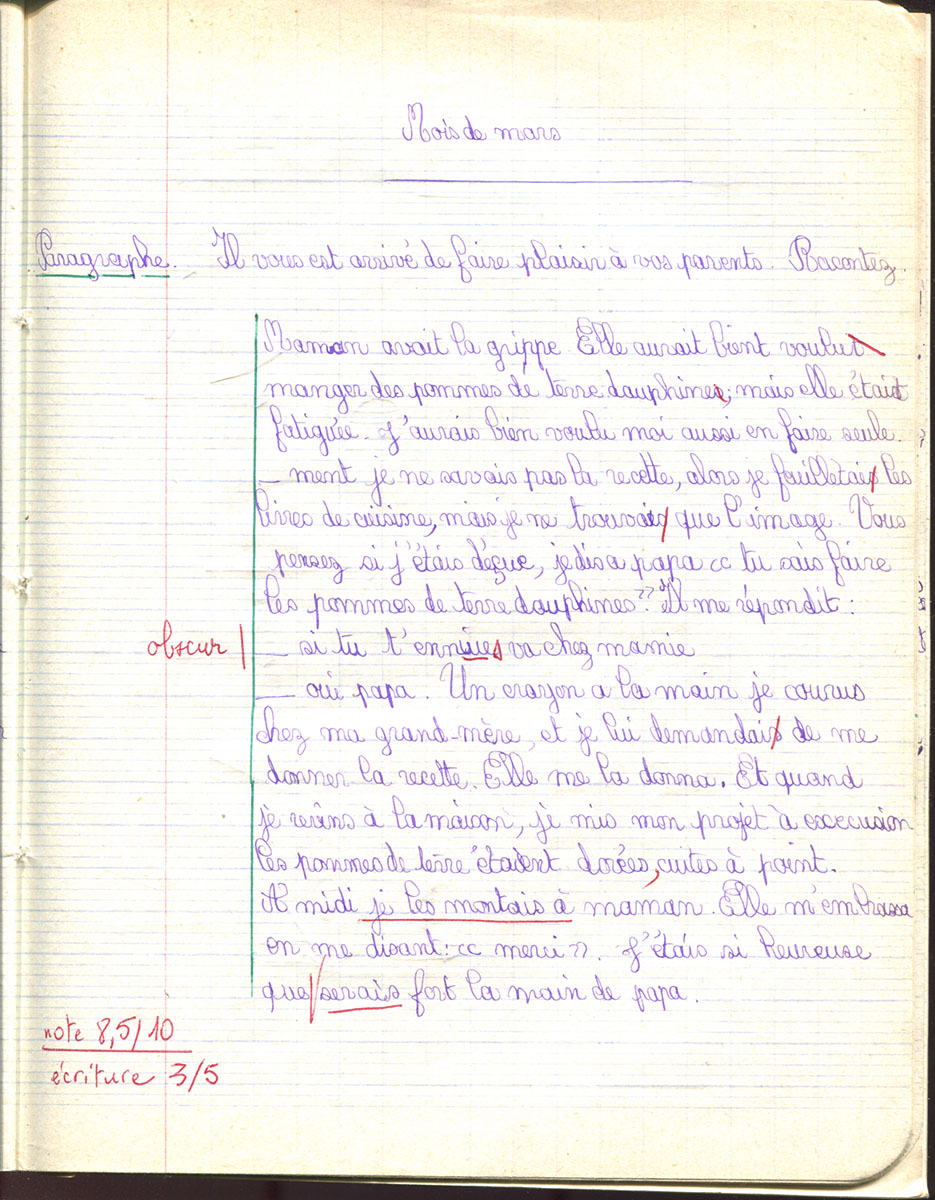 Mois de mars
Paragraphe. Il vous est arrivé de faire plaisir à vos parents. Racontez.
Maman avait la grippe. Elle aurait bient voulut
manger des pommes de terre dauphines, mais elle était
fatiguée. J'aurais bien voulu moi aussi en faire seule.
_ ment je ne savais pas la recette, alors je feuilletais les
livres de cuisine, mais je ne trouvais que l'image. Vous
pensez si j'étais déçue, je dis a papa << tu sais faire
les pommes de terre dauphines? >> Il me répondit :
obscur _ si tu t'ennuies va chez mamie
_ oui papa. Un crayon a la main je courus
chez ma grand-mère, et je lui demandais de me
donner la recette. Elle me la donna. Et quand
je revins à la maison, je mis mon projet à excecusion
les pommes de terre étaient dorées, cuites à point.
A midi je les montais à maman. Elle m'embrassa
en me disant : << merci >>. J'étais si heureuse
que serais fort la main de papa.
note 8,5/10
écriture 3/5